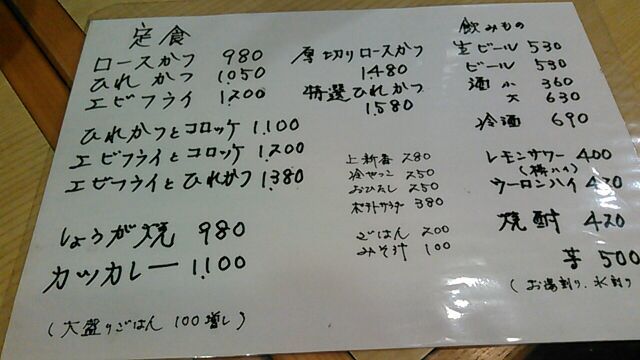 定食
ロースかつ 980
ひれかつ 1,050
エビフライ 1,200
ひれかつとコロッケ 1,100
エビフライとコロッケ 1,200
エビフライとひれかつ 1,380
しょうが焼 980
カツカレー 1,100
(大盛りごはん 100増し)
厚切りロースかつ
1480
特選ひれかつ
1,580
上新香 280
冷やっこ 250
おひたし 250
ポテトサラダ 380
ごはん 200
みそ汁 100
飲みもの
生ビール 530
ビール 530
酒 小 360
大 630
冷酒 690
レモンサワー 400
ウーロンハイ 420
焼酎 420
芋 500
(お湯割り、水割り